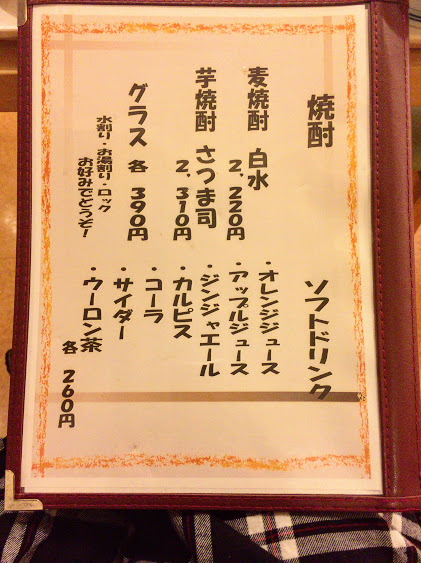 焼酎
麦焼酎 白水
2,220円
芋焼酎 さつま司
2,310円
グラス 各 390円
水割り・お湯割り・ロック
お好みでどうぞ!
ソフトドリンク
・オレンジジュース
・アップルジュース
・ジンジャエール
・カルピス
・コーラ
・サイダー
・ウーロン茶
各 260円